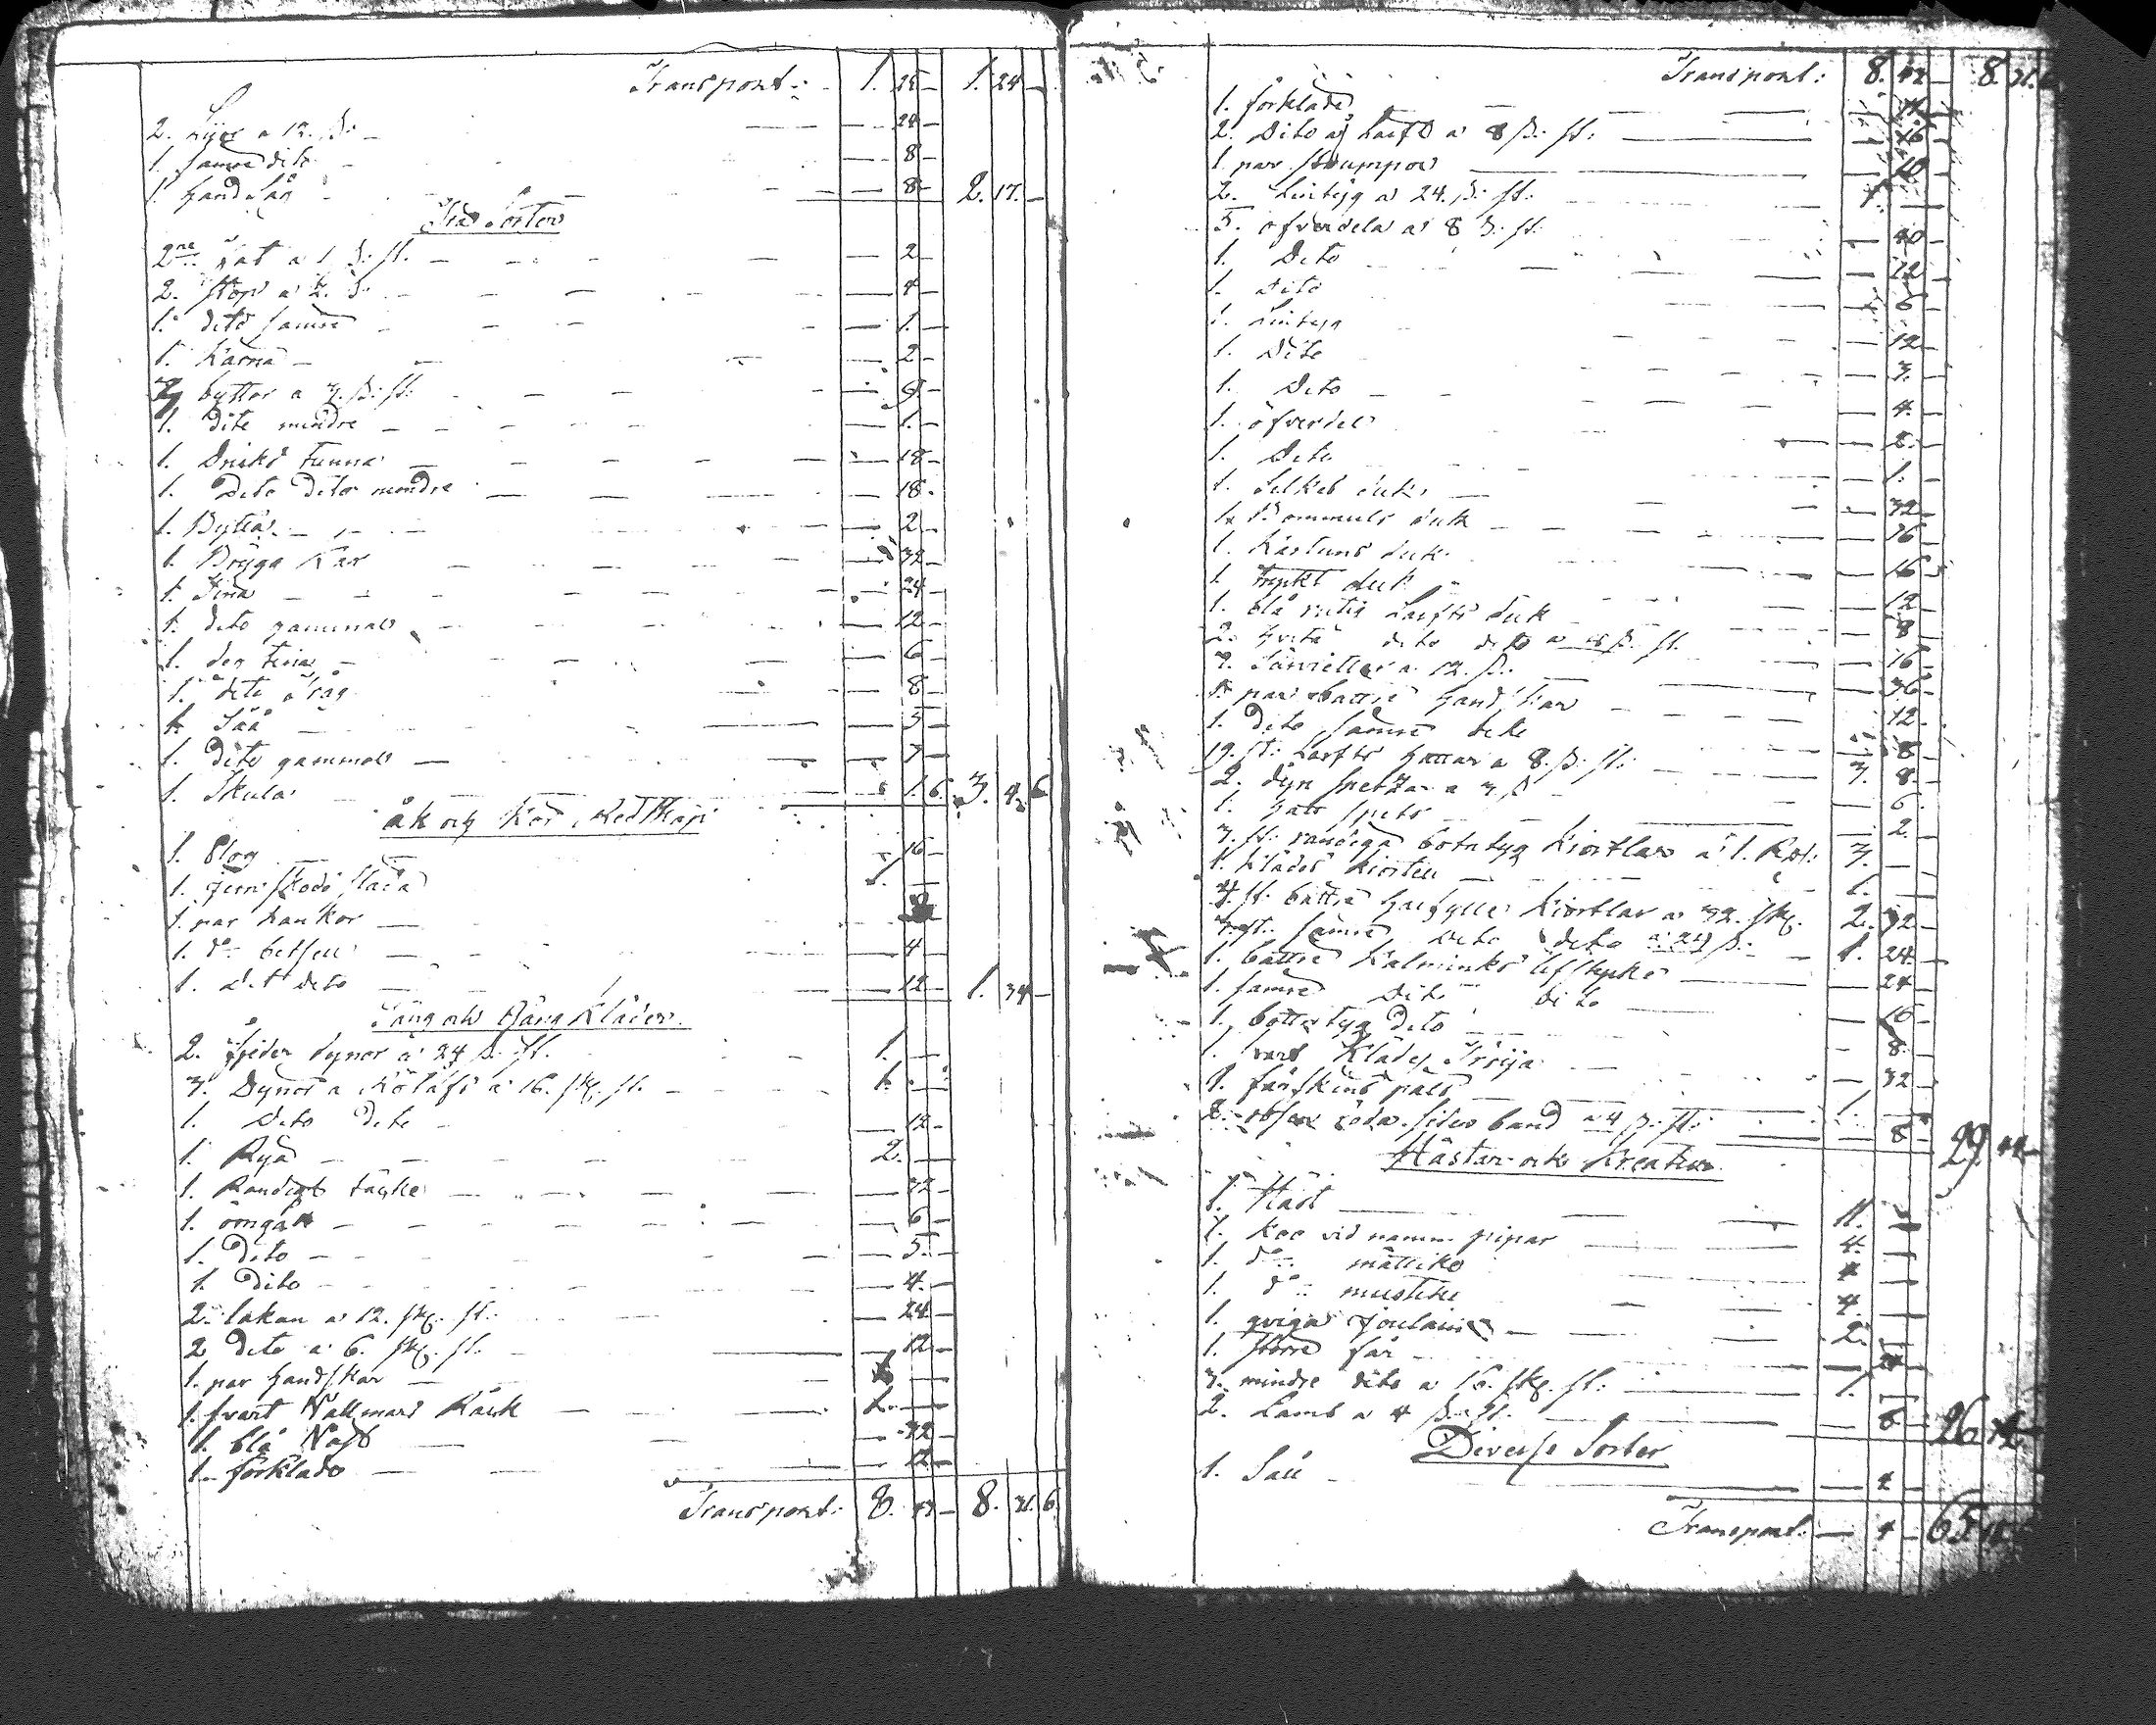 Transport: 1. 25 — 1. 24 —
2. Lijor a 12. ß: — 24 —
1. samre dito — 8 —
1. handsåg — 8 — 2. 17. —
Träd Sorter
2ne fat a 1 ß: st. — 2 —
2. stop a 2. ß: — 4 —
1. dito samre — 1. —
1. Kärna — 2 —
3 byttor a 3. ß: st: — 9 —
1. dito mindre — 1. —
1. Dricks tunna — 18 —
1. Dito dito mindre — 18.
1. Bytta — 2 —
1. Brygg Kar — 32 —
1. Tina — 24 —
1. dito gammal — 12 —
1. deg tina — 6 —
1. dito tråg — 8 —
1. Såå — 5 —
1. Dito gammal — 7 —
1. Skula — 1. 6. 3. 4. 6
Åk och Kör Redskap
1. Plog — 16 —
1. Jern skodd släda 1. —
1. par hankor —
1. do betsell — 4 —
1. dito — 12 — 1. 34 —
Säng och Gång Kläder
2. fjeder dynor a 24 ß. st. 1. —
3. Dynor a Kötåfs a 16. skg. st. 1. —
1. Dito Dito — 12 —
1. Rya 2. —
1. Randigt täcke — 32 —
1. örngått — 6 —
1. Dito — 5. —
1. Dito — 4. —
2. lakan a 12. skg. st. — 24 —
2 Dito a 6. skg. st. — 12 —
1. par handskar —
1. svart Vallmars Råck 1. —
1. blå Väst — 32 —
1. förkläde — 12 —
Transport: 8. 43 — 8. 31. 6
Transport: 8. 43 — 8. 31. 6
1. förkläde
2. Dito af Lärft a 8 ß: st: — 16 —
1 par strumpor — 10 —
2. Lintyg a 24. ß: st: 1. —
5. öfverdelar a 8 ß: st: — 40 —
1. Dito — 12 —
1. Dito — 6 —
1. Lintyg — 12 —
1. Dito — 3. —
1. Dito — 4. —
1. öfverdel
1. Dito — 1. —
1. Silkes duk — 32 —
1. Bommuls duk — 16 —
1. Kastuns duk — 16 —
1. tryckt duk — 12 —
1. blå rutig Lärfts duk — 8 —
2. hvita dito dito a 8 ß. st. — 16 —
3. Särvietter a 12. ß: — 36 —
1. par bättre handskar — 12 —
1. dito samre dito — 8 —
19. st: Lärfts hattar a 8. ß: st: 3. 8 —
2. dyn spetsar a 3 ß — 6 —
1. hals spets — 2. —
3. st: randiga botntyg Kiortlar a 1. Rd: 3. —
1. Klädes kiortell 1. —
4. st. bättre halfylle kiortlar a 32. skg. 2. 32 —
3. st: samre dito dito a 24 ß: 1. 24 —
1. bättre Kalminks lifstycke — 24 —
1. samre dito dito — 16 —
1. bottentyg dito — 8 —
1. svart Klädes Tröija — 32 —
1. fårskins päls 1. —
2. röda silkes band a 4 ß: st: — 8 — 29. 44 —
Hästar och Kreatur
1. Häst 11. —
1. Koo vid namn pipar 4. —
1. do mällika 4 —
1. do 4. —
1. qviga 2. —
1. större får — 24 —
3. mindre dito a 16. skg. st: 1. —
2. Lamb a 4 ß. st. — 8 — 26.
Diverse Sorter
1. Såll — 4 —
Transport: — 4 — 65